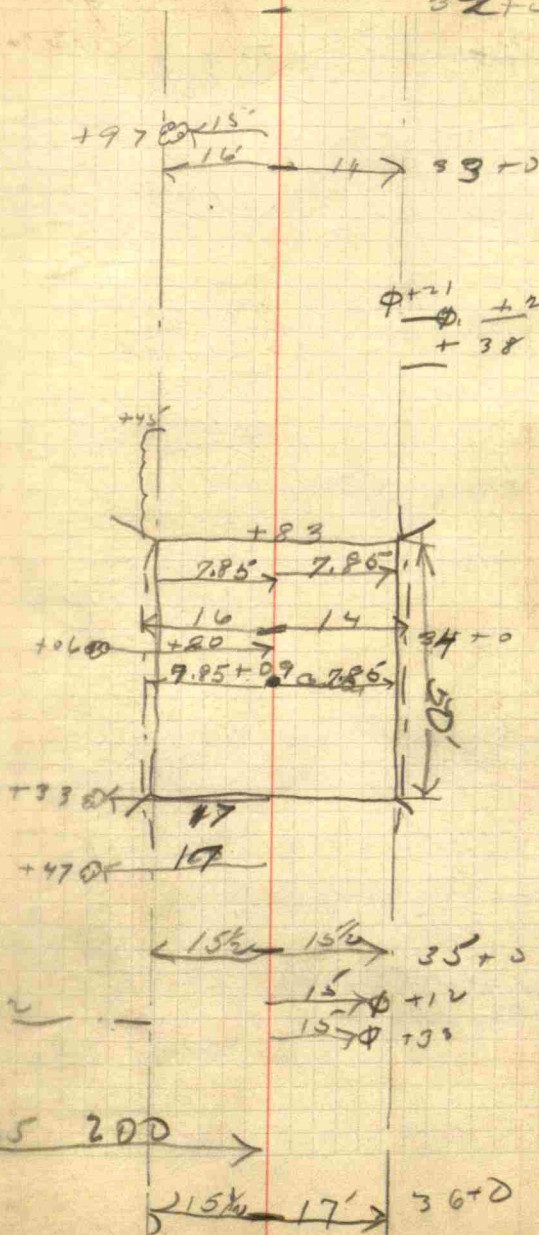 +97 15'
16 14 33+0
ϕ+21
+38
+45'
+83
7.85 7.85
16 14 34+0
+06 +20
7.85 +09 7.85
50'
+33
17
+47 17
15½ 15½ 35+0
15 ϕ +12
15 ϕ +33
5 200
15½ 17' 36+0